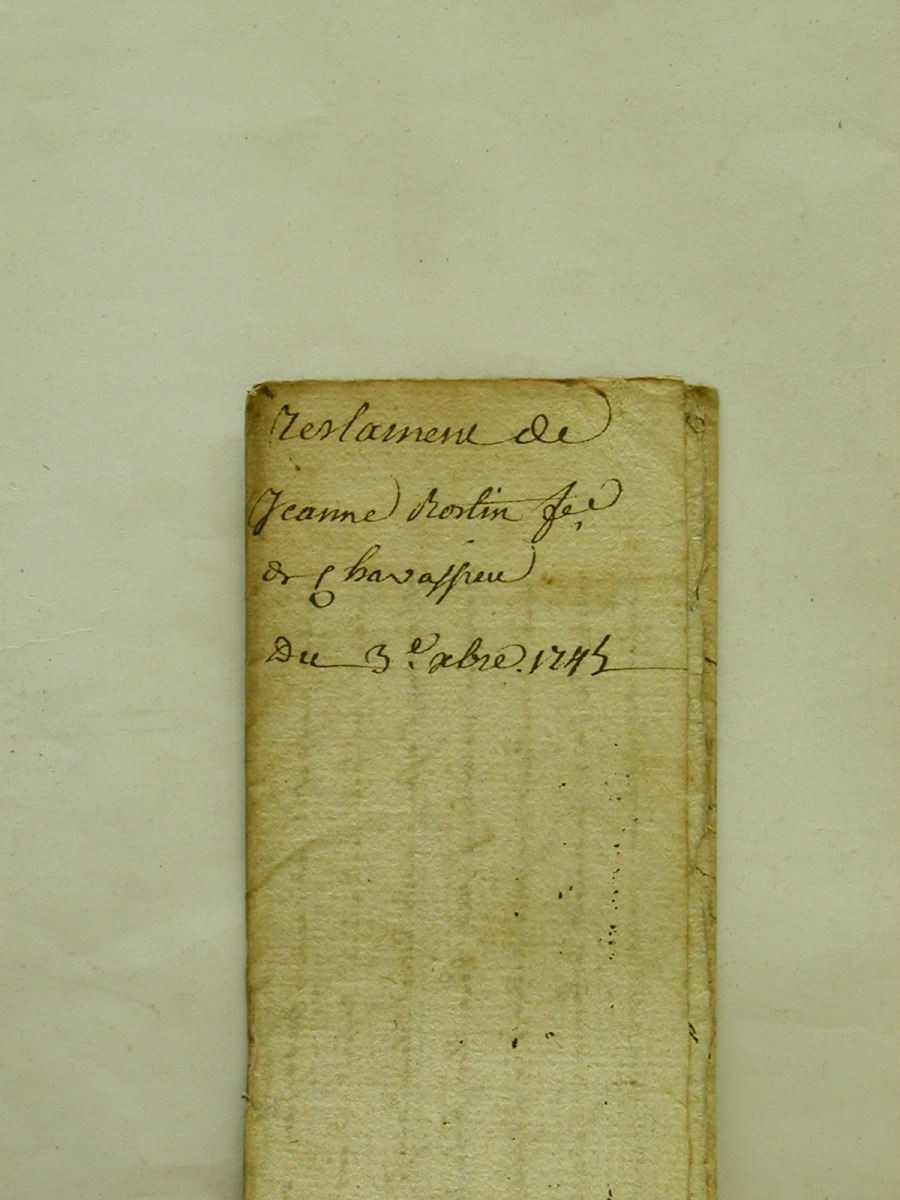 Testament de
Jeanne Rostin fe.e
de Chavassieu
Du 3.e xbre. 1745